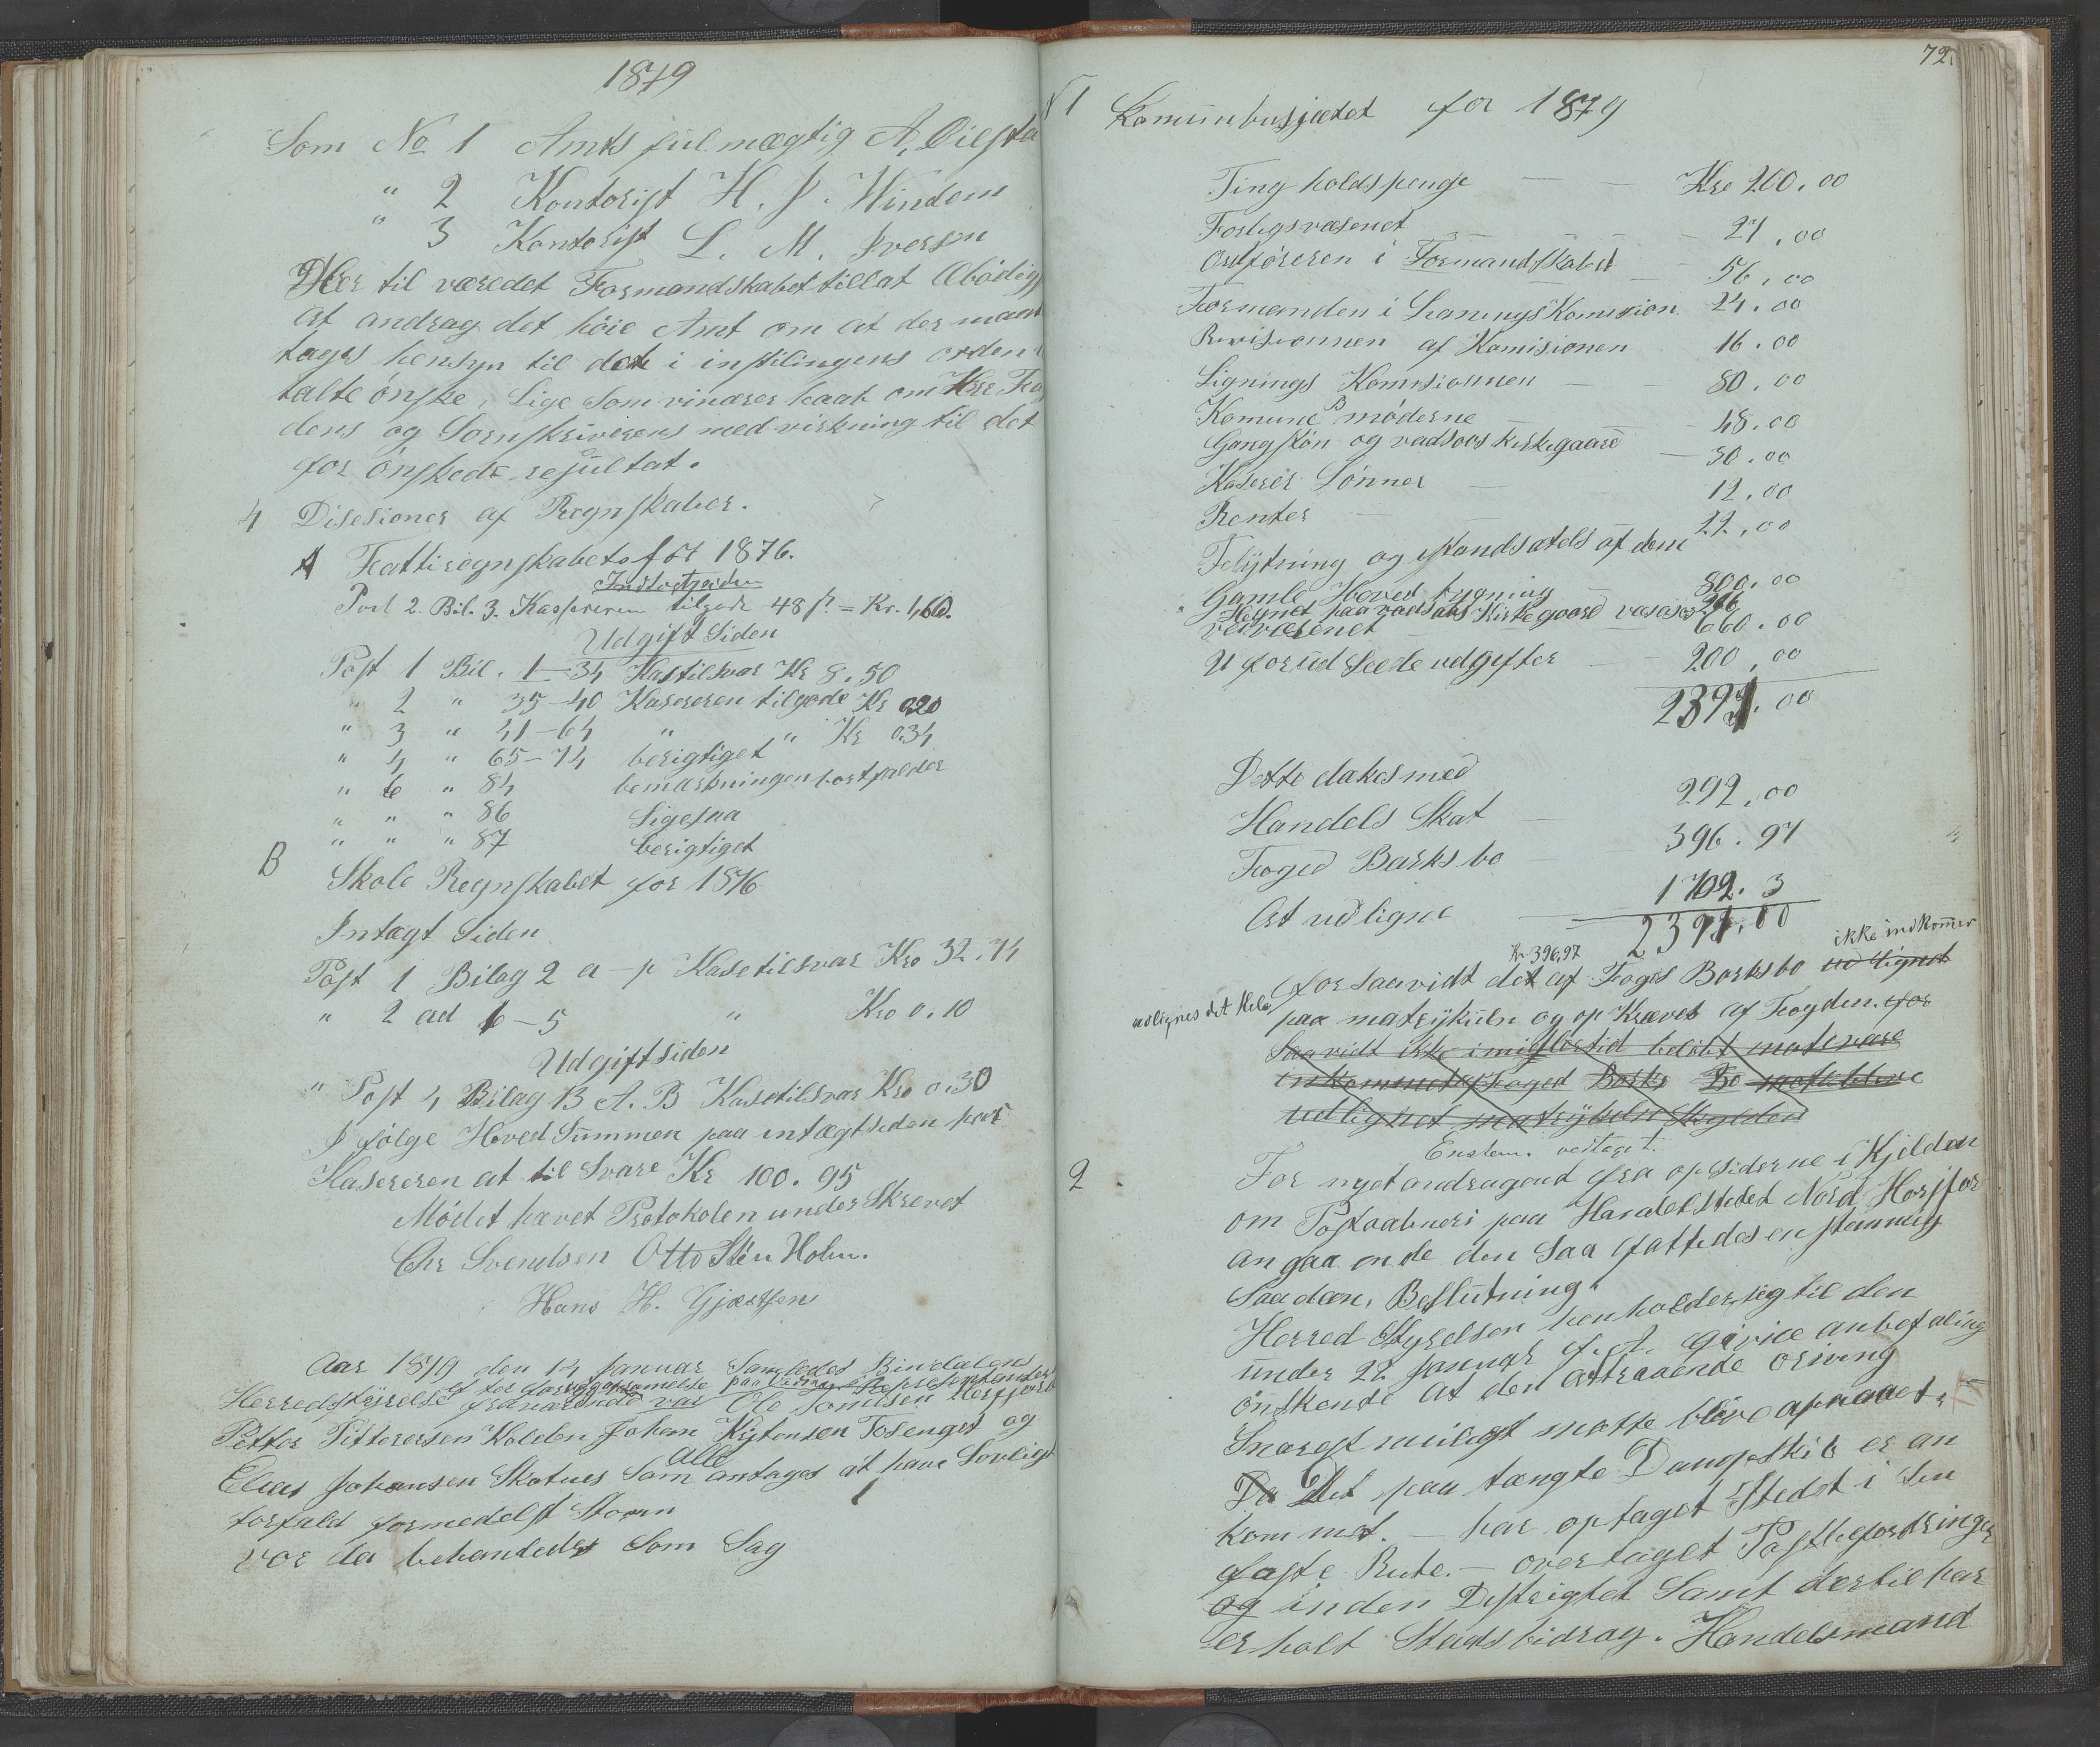 1879
Som No 1 Amts fulmægtig A,
" 2 Kontorist H. J. Windem
" 3 Kontorist L. M. Iversen
Her til væredet Formandskabet tillat
At andrag det höie Amt om at der maat
tages hensyn til det i instilingens orden
talte önske, Lige Som vi nærer haab om Hrr Fo
dens og Sornskriverens med virkning til det
for önskede resultat.
4 Disesioner af Regnskaber.
A Fattiregnskabets for 1876.
Indtægtsiden
Post 2. Bil. 3. Kassereren tilgode 48 s. = Kr. 1,60.
Udgift Siden
Post 1 Bil. 1-34 Kastilsvar Kr 8.50
" 2 " 35-40 Kasereren tilgode Kr 0.20
" 3 " 41-64 " " Kr 0.34
" 4 " 65-74 berigtiget
" 6 " 84 bemærkningen bortfalder
" " " 86 Ligesaa
" " " 87 berigtiget
B Skole Regnskabet for 1876
Intægt Siden
Post 1 Bilag 2 a - p Kasetilsvar Kro 32.74
" 2 ad 6-5 " Kro 0.10
Udgiftsiden
" Post 4 Bilag 13 A. B Kasetilsvar Kro 0.30
I følge Hoved Summen paa intægtsiden har
Kasereren at til Svare Kr 100.95
Mödet hævet Protokolen under Skrevet
Chr Svendsen Otto Sten Holm.
Hans H. Gjærtsen
Aar 1879 den 14 Januar Samledes Bindalens
Herredstyrelse fraværende var Ole Tomesen Horsfjord
Petter Pittersen Holden Johan Kristensen Tosenget og
Elias Johansen Skotnes Som alle antages at have Lovligt
forfald formedelst Storm
Vor da behandledes Som Sag
72.
N 1 Komunebusjædet for 1879
Ting holdspenge — — Kro 200.00
Forligsvæsenet 24,00
Ordföreren i Formandskabet 56,00
Formanden i Lanings Komision 24.00
Revisionnen af Komisionen 16.00
Lignings Komisionnen — 80.00
Komune möderne 48.00
Gangstön og vadsoos kirkegaard 30.00
Kaserer Lönner — 12,00
Renter — 22,00
Felytning og istandsatels af dem
Gamle Hoved bygning 800.00
Hegnet paa vadsoos Kirkegaard 216
veivæsenet — 660.00
Uforud Seede udgifter — 200,00
2391.00
Dette dækes med
Handels Skat — 292,00
Foged Barks bo — 396.97
At udligne — 1702.3
2391.00
Kr 396,97 ikke indkommer
for saavidt det af Foged Barksbo ud lignet
udlignes det Hele paa matrykuln og op Kræves af Fogden. for
Saavidt ikke imidlertid belöbt motevære
inkommet af Foged Barks Bo
udlignet matrykuln Skylden
Enstem. vedtaget.
2. For nyet andragent fra opsiderne i Kjelden
om Postaabneri paa Handelstedet Nord Horsfor
an gaa ende den Saa fattedes enstemmig
Saadan, Beslutning.
Herred Styrelsen henholder sig til den
under 22 Januar f. A. givne anbefaling
önskende At den Attraaende oriving
Snarest muligt matte blive opnaaet.
Da Det paa tængte Dampskib er an
kommet. — har optaget Stedst i Sin
faste Rute. — overtaget Postbefordringen
og inden Distrigtet Samt dertil har
erholt Stadsbidrag. Handelsmand